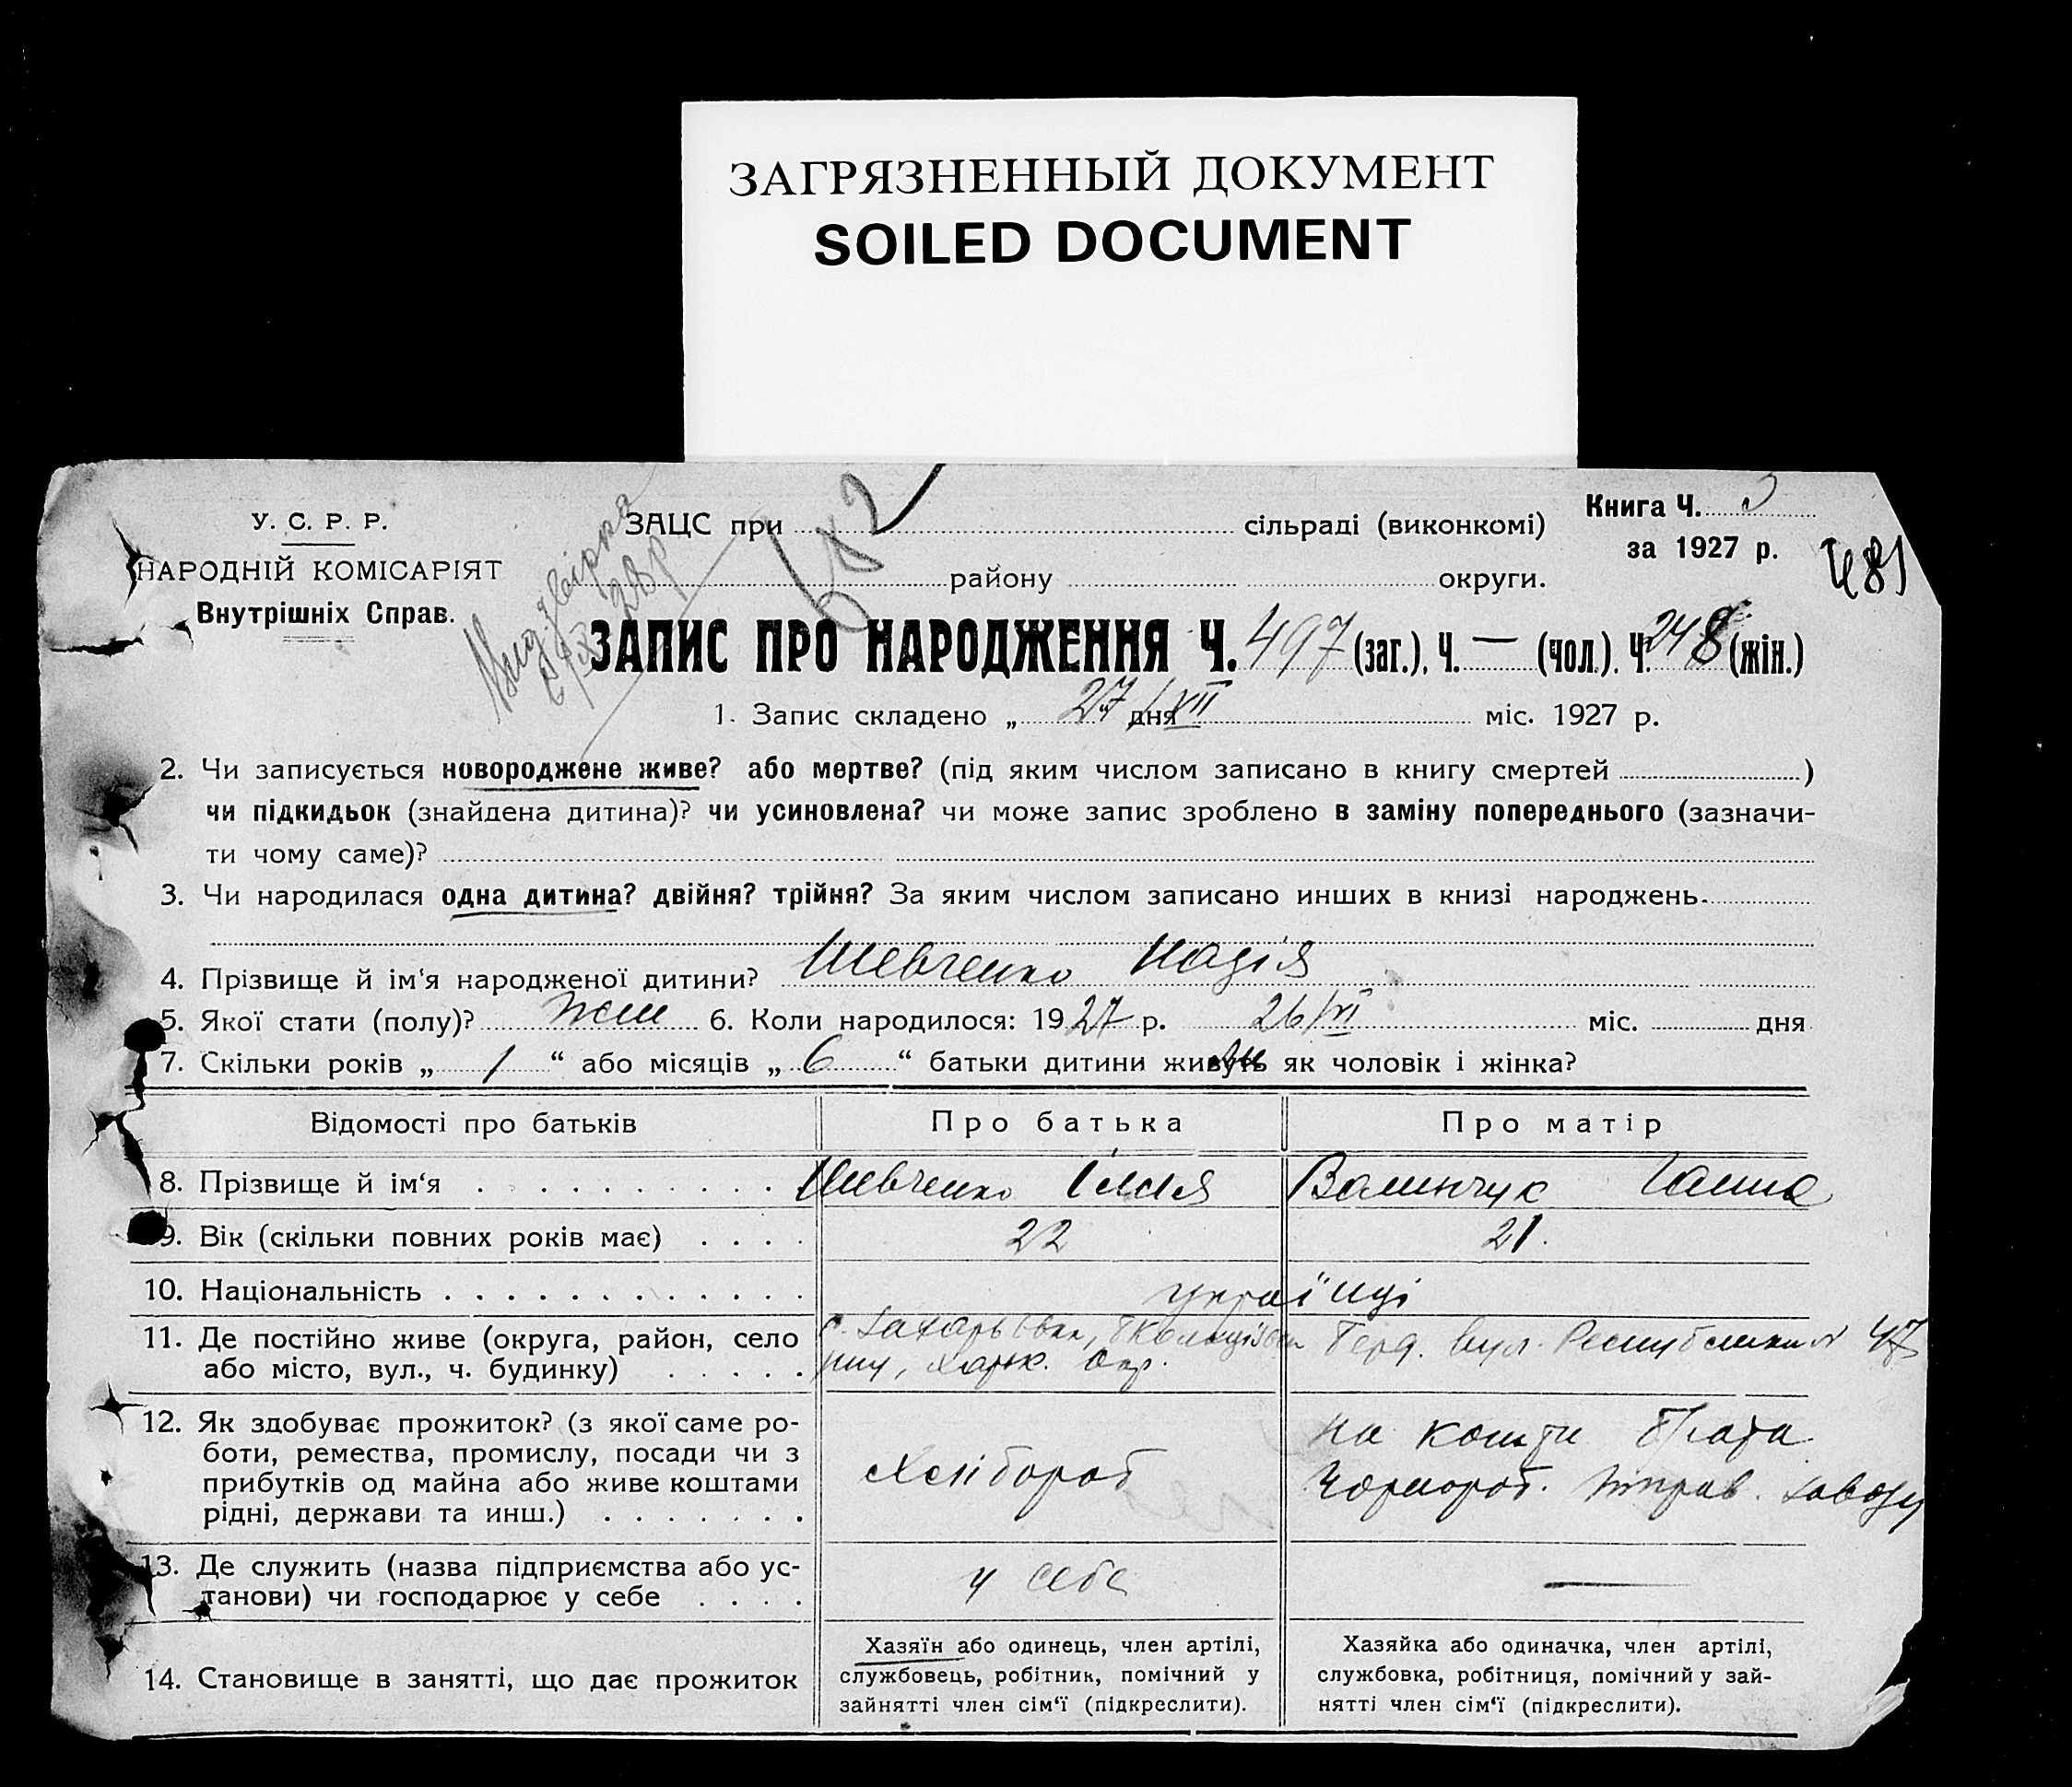 ЗАГРЯЗНЕННЫЙ ДОКУМЕНТ
SOILED DOCUMENT
У. С. Р. Р.
НАРОДНІЙ КОМІСАРІЯТ
Внутрішніх Справ.
ЗАЦС при сільраді (виконкомі)
району округи.
Книга Ч. 3
за 1927 р.
481
ЗАПИС ПРО НАРОДЖЕННЯ Ч. 497 (заг.), Ч. — (чол.). Ч. 248 (жін.)
1. Запис складено „ 27 дня XII міс. 1927 р.
2. Чи записується новороджене живе? або мертве? (під яким числом записано в книгу смертей )
чи підкидьок (знайдена дитина)? чи усиновлена? чи може запис зроблено в заміну попереднього (зазначи-
ти чому саме)?
3. Чи народилася одна дитина? двійня? трійня? За яким числом записано инших в книзі народжень.
4. Прізвище й ім‘я народженої дитини? Шевченко Надія
5. Якої стати (полу)? жін 6. Коли народилося: 1927 р. 26/XI міс. дня
7. Скільки років „ 1 “ або місяців „ 6 “ батьки дитини живуть як чоловік і жінка?
Відомості про батьків Про батька Про матір
8. Прізвище й ім‘я Шевченко Ілля Валинчук Ганна
9. Вік (скільки повних років має) 22 21.
10. Національність українці
11. Де постійно живе (округа, район, село
або місто, вул., ч. будинку)
Харк. Окр.
Берд. вул. Республики № 47
12. Як здобуває прожиток? (з якої саме ро-
боти, ремества, промислу, посади чи з
прибутків од майна або живе коштами
рідні, держави та инш.)
Хлібороб
на кошти брата
Чорнороб. заводу
13. Де служить (назва підприємства або ус-
танови) чи господарює у себе
у себе
—
14. Становище в занятті, що дає прожиток
Хазяїн або одинець, член артілі,
службовець, робітник, помічний у
зайнятті член сім‘ї (підкреслити).
Хазяйка або одиначка, член артілі,
службовка, робітниця, помічний у зай-
нятті член сім‘ї (підкреслити).